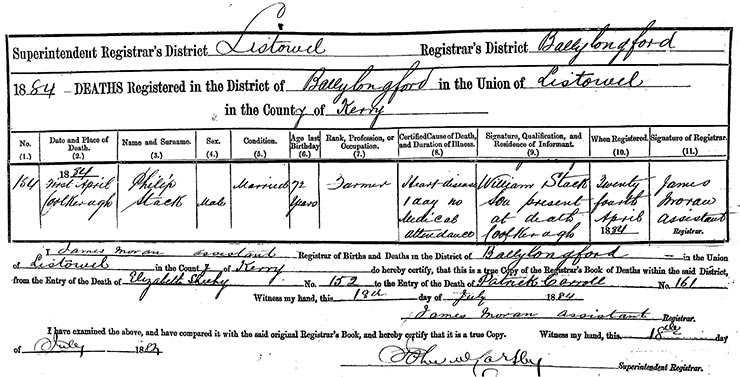 Superintendent Registrar's District Listowel Registrar's District Ballylongford
1884 — DEATHS Registered in the District of Ballylongford in the Union of Listowel
in the County of Kerry
No. (1.) Date and Place of Death. (2.) Name and Surname. (3.) Sex. (4.) Condition. (5.) Age last Birthday (6.) Rank, Profession, or Occupation. (7.) Certified Cause of Death, and Duration of Illness. (8.) Signature, Qualification, and Residence of Informant. (9.) When Registered. (10.) Signature of Registrar. (11.)
154 1884 First April Coolkeragh Philip Stack Male Married 72 Years Farmer Heart disease 1 day no Medical attendance William Stack Son present at death Coolkeragh Twenty fourth April 1884 James Moran assistant Registrar.
I James Moran assistant Registrar of Births and Deaths in the District of Ballylongford in the Union
of Listowel in the County of Kerry do hereby certify, that this is a true Copy of the Registrar's Book of Deaths within the said District,
from the Entry of the Death of Elizabeth Sheehy No. 152 to the Entry of the Death of Patrick Carroll No. 161
Witness my hand, this 18th day of July 1884
James Moran assistant Registrar.
I have examined the above, and have compared it with the said original Registrar's Book, and hereby certify that it is a true Copy. Witness my hand, this 18th day
of July 1884
Superintendent Registrar.